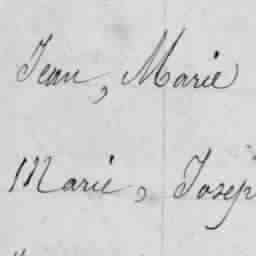 Jean, Marie
Marie, Josep